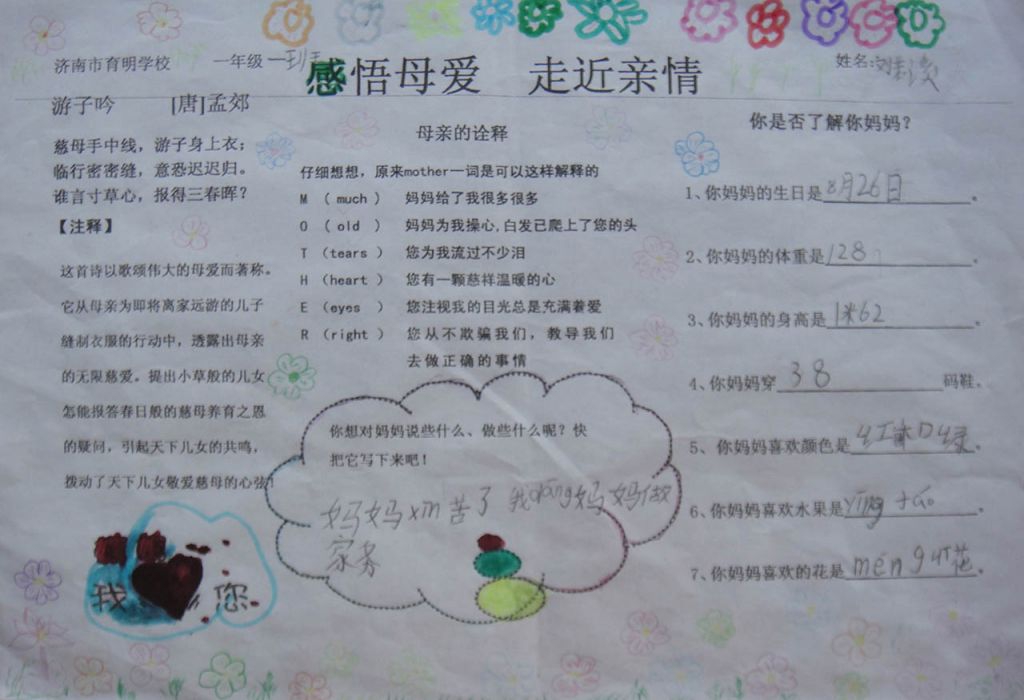 济南市育明学校 一年级一班
感悟母爱 走近亲情
姓名:刘
游子吟 [唐]孟郊
慈母手中线，游子身上衣；
临行密密缝，意恐迟迟归。
谁言寸草心，报得三春晖？
【注释】
这首诗以歌颂伟大的母爱而著称。
它从母亲为即将离家远游的儿子
缝制衣服的行动中，透露出母亲
的无限慈爱。提出小草般的儿女
怎能报答春日般的慈母养育之恩
的疑问，引起天下儿女的共鸣，
拨动了天下儿女敬爱慈母的心弦！
我 您
母亲的诠释
仔细想想，原来mother一词是可以这样解释的
M （much） 妈妈给了我很多很多
O （old ） 妈妈为我操心,白发已爬上了您的头
T （tears） 您为我流过不少泪
H （heart） 您有一颗慈祥温暖的心
E （eyes ） 您注视我的目光总是充满着爱
R （right） 您从不欺骗我们，教导我们
去做正确的事情
你想对妈妈说些什么、做些什么呢？快
把它写下来吧！
妈妈xīn苦了 我 妈妈做
家务
你是否了解你妈妈？
1、你妈妈的生日是8月26日。
2、你妈妈的体重是128。
3、你妈妈的身高是1米62。
4、你妈妈穿38码鞋。
5、你妈妈喜欢颜色是红 口绿。
6、你妈妈喜欢水果是。
7、你妈妈喜欢的花是 花。